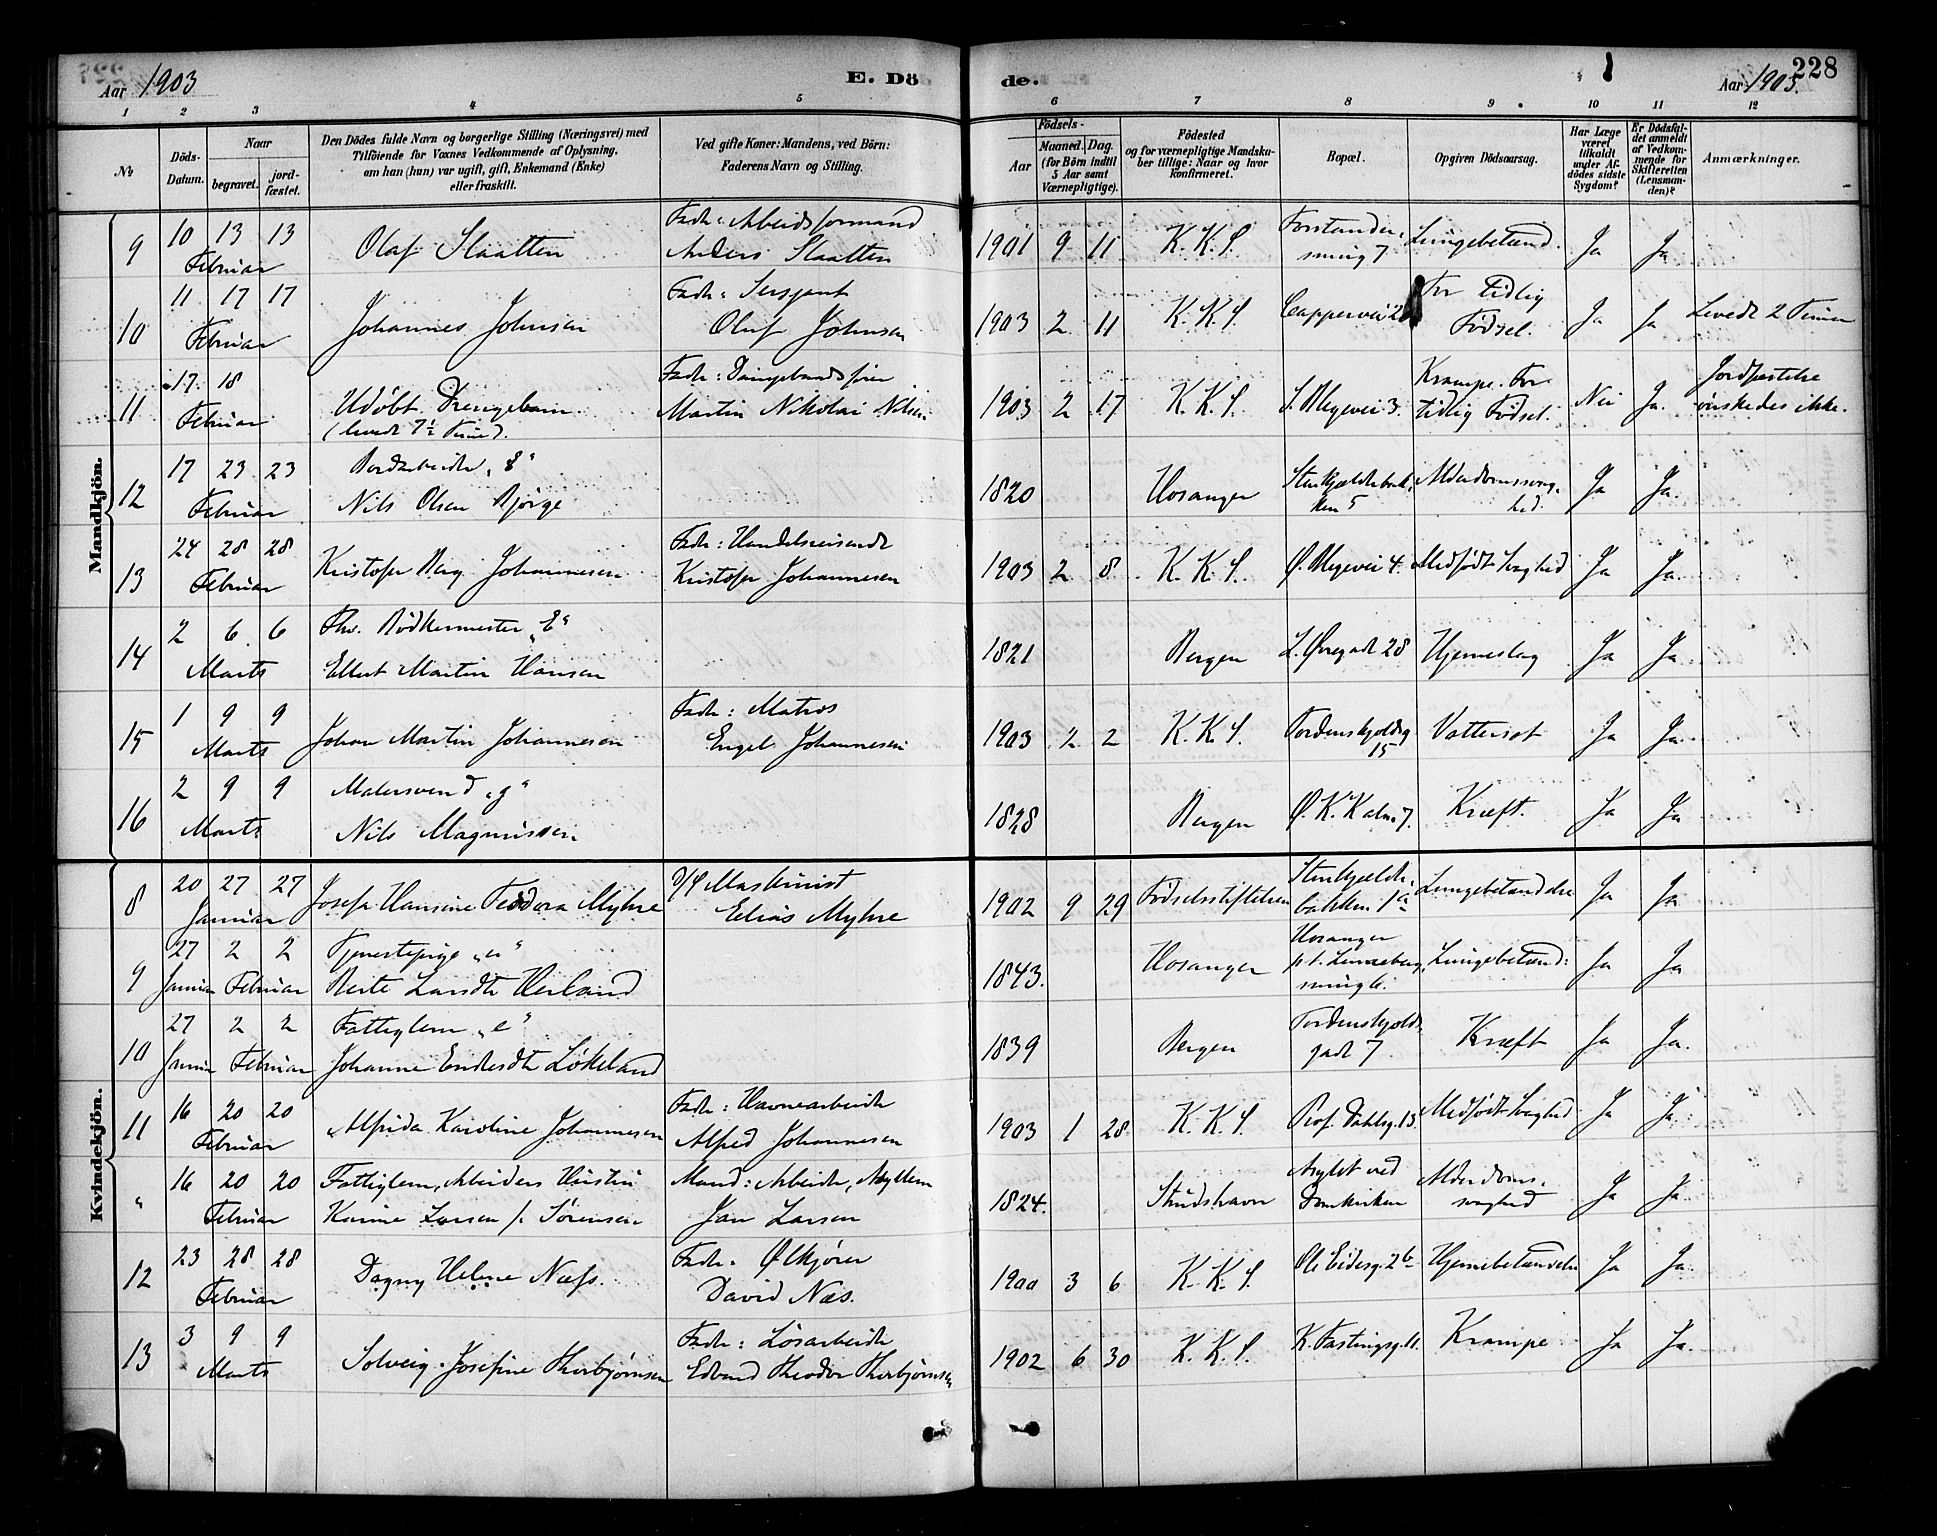 Aar 1903
E. Dö
de.
228
Aar 1903.
1 2 3 4 5 6 7 8 9 10 11 12
No
Döds-Datum.
Naar
begravet.
jord-fæstet.
Den Dödes fulde Navn og borgerlige Stilling (Næringsvei) med
Tilföiende for Voxnes Vedkommende af Oplysning,
om han (hun) var ugift, gift, Enkemand (Enke)
eller fraskilt.
Ved gifte Koner: Mandens, ved Börn:
Faderens Navn og Stilling.
Födsels-
Aar
Maaned. Dag.
(for Börn indtil
5 Aar samt
Værnepligtige).
Födested
og for værnepligtige Mandska-
ber tillige: Naar og hvor
konfirmeret.
Bopæl.
Opgiven Dödsaarsag.
Har Læge
været
tilkaldt
under Af-
dödes sidste
Sygdom?
Er Dödsfal-
det anmeldt
af Vedkom-
mende for
Skifteretten
(Lensman-
den)?
Anmærkninger.
Mandkjön.
9 10 13 13 Februar Olaf Slaatten Fader: Arbeidsformand Anders Slaatten 1901 9 11 K. K. S. Lungebetænd. Ja Ja
10 11 17 17 Februar Johannes Johnsen Fader: Sersjant Oluf Johnsen 1903 2 11 K. K. S. For tidlig Födsel. Ja Ja Levede 2 Timer
11 17 18 Februar Udöbt Drengebarn (levede 7½ Time). Martin Nikolai Nilsen 1903 2 17 K. K. S. Krampe. For tidlig Födsel. Nei Ja. Jordfæstelse önskedes ikke.
12 17 23 23 Februar Nils Olsen Bjørge 1820 Hosanger Stenkjelderbakken 5 Alderdomssvaghed. Ja Ja.
13 24 28 28 Februar Kristofer Berg Johannesen Fader: Handelsreisende Kristofer Johannesen 1903 2 8 K. K. S. Ø. Blegevei 4. Medfödt Svaghed Ja Ja.
14 2 6 6 Marts Fhv. Bödkermester "E" Ellert Martin Hansen 1821 Bergen L. Øvregade 28 Hjerneslag Ja Ja
15 1 9 9 Marts Johan Martin Johannesen Fader: Matros Engel Johannesen 1903 2 2 K. K. S. Tordenskjoldsg 15 Vattersot Ja Ja
16 2 9 9 Marts Malersvend "g" Nils Magnussen 1828 Bergen Kræft. Ja Ja
Kvindekjön.
8 20 27 27 Januar Josefa Hansine Teodora Myhre Maskinist Elias Myhre 1902 9 29 Födselsstiftelsen Stenkjelderbakken 1a Lungebetændelse Ja Ja.
9 27 2 2 Januar Februar Tjenestepige "u" Berte Larsdtr Herland 1843. Hosanger Hosanger Lungebetænd: Ja Ja
10 27 2 2 Januar Februar Fattiglem "e" Johanne Løkeland 1839 Bergen Tordenskjolds gade 7. Kræft Ja Ja.
11 16 20 20 Februar Alfrida Karoline Johannesen Fader: Havnearbeider Alfred Johannesen 1903 1 28 K. K. S. Prof. Dahlsg. 13. Medfödt Svaghed Ja Ja
" 16 20 20 Februar Fattiglem, Arbeiders Hustru Karine Larsen f. Sörensen Mand: Arbeider, Jan Larsen 1824. Strudshavn Asylet ved Domkirken Alderdoms-svaghed Ja Ja.
12 23 28 28 Februar Dagny Helene Næss. Fader: Ølkjører David Næs. 1900 3 6 K. K. S. Ole Eidesg. 26 Hjernebetændelse Ja Ja.
13 3 9 9 Marts Solveig Josefine Thorbjørnsen Fader: Løsarbeider Edvard Theodor Thorbjørnsen 1902 6 30 K. K. S. K. Fastingsg. 11. Krampe Ja Ja.